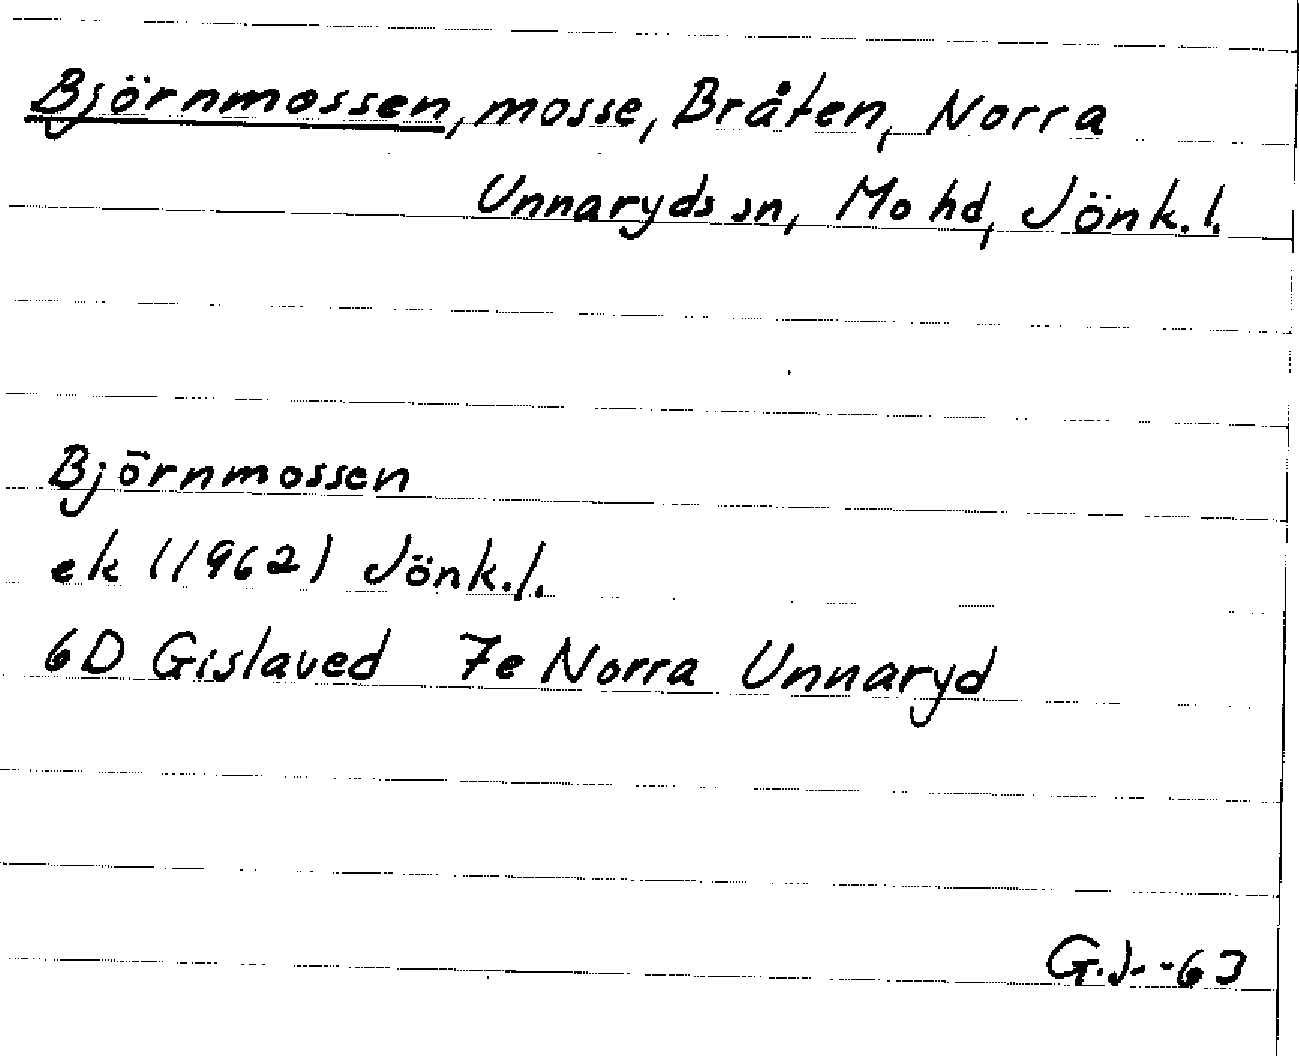 Björnmossen, mosse, Bråten, Norra
Unnaryds sn, Mo hd, Jönk.l.
Björnmossen
ek (1962) Jönk.l.
6D Gislaved 7e Norra Unnaryd
G.J.-63